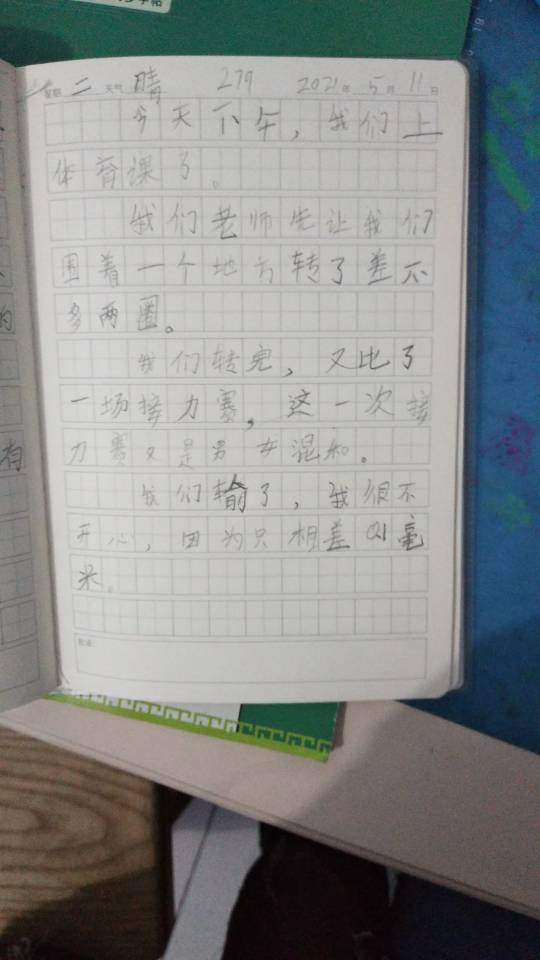 星期 二 天气 晴 279 2021年 5月 11日
今天下午，我们上
体育课了。
我们老师先让我们
围着一个地方转了差不
多两圈。
我们转完，又比了
一场接力赛，这一次接
力赛又是男女混和。
我们输了，我很不
开心，因为只相差0.1毫
米。
的
有
字帖